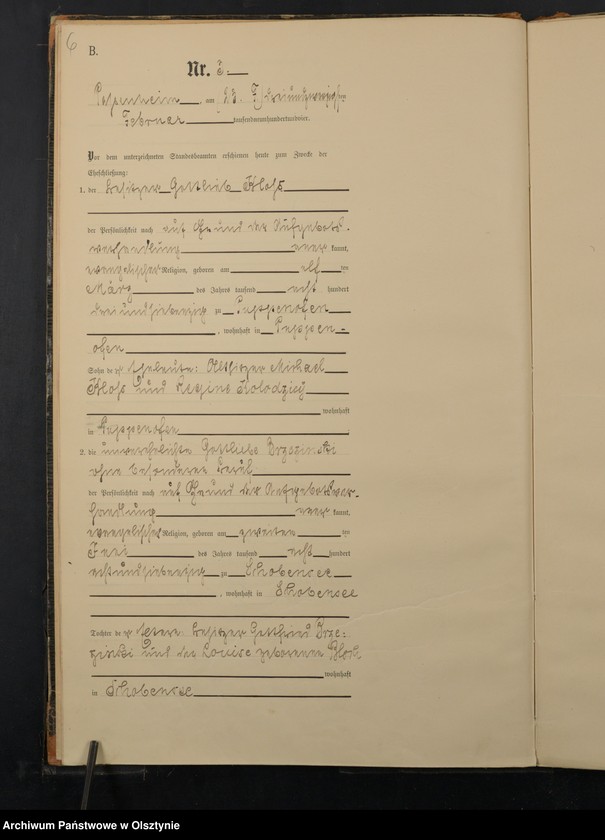 6
B.
Nr. 5.
am 23. Dreiundzwanzigsten
Februar tausendneunhundertundvier.
Vor dem unterzeichneten Standesbeamten erschienen heute zum Zwecke der
Eheschließung:
1. der Besitzer Gottlieb Kloß
der Persönlichkeit nach auf Grund der Aufgebots-
verhandlung aner kannt,
evangelischer Religion, geboren am elf ten
März des Jahres tausend acht hundert
dreiundsiebenzig zu Puppenofen
, wohnhaft in Puppen-
ofen
Sohn der Eheleute: Altsitzer Michael
Kloß und Regine Kolodzicy
wohnhaft
in Puppenofen
2. die unverehelichte Gottliebe Brzezinski
ohne besonderen Beruf
der Persönlichkeit nach auf Grund der Aufgebotsver-
handlung aner kannt,
evangelischer Religion, geboren am zweiten ten
des Jahres tausend acht hundert
achtundsiebenzig zu Schobensee
, wohnhaft in Schobensee
Tochter des Besitzer Gottfried Brze-
zinski und der Louise geborenen
wohnhaft
in Schobensee
Archiwum Państwowe w Olsztynie